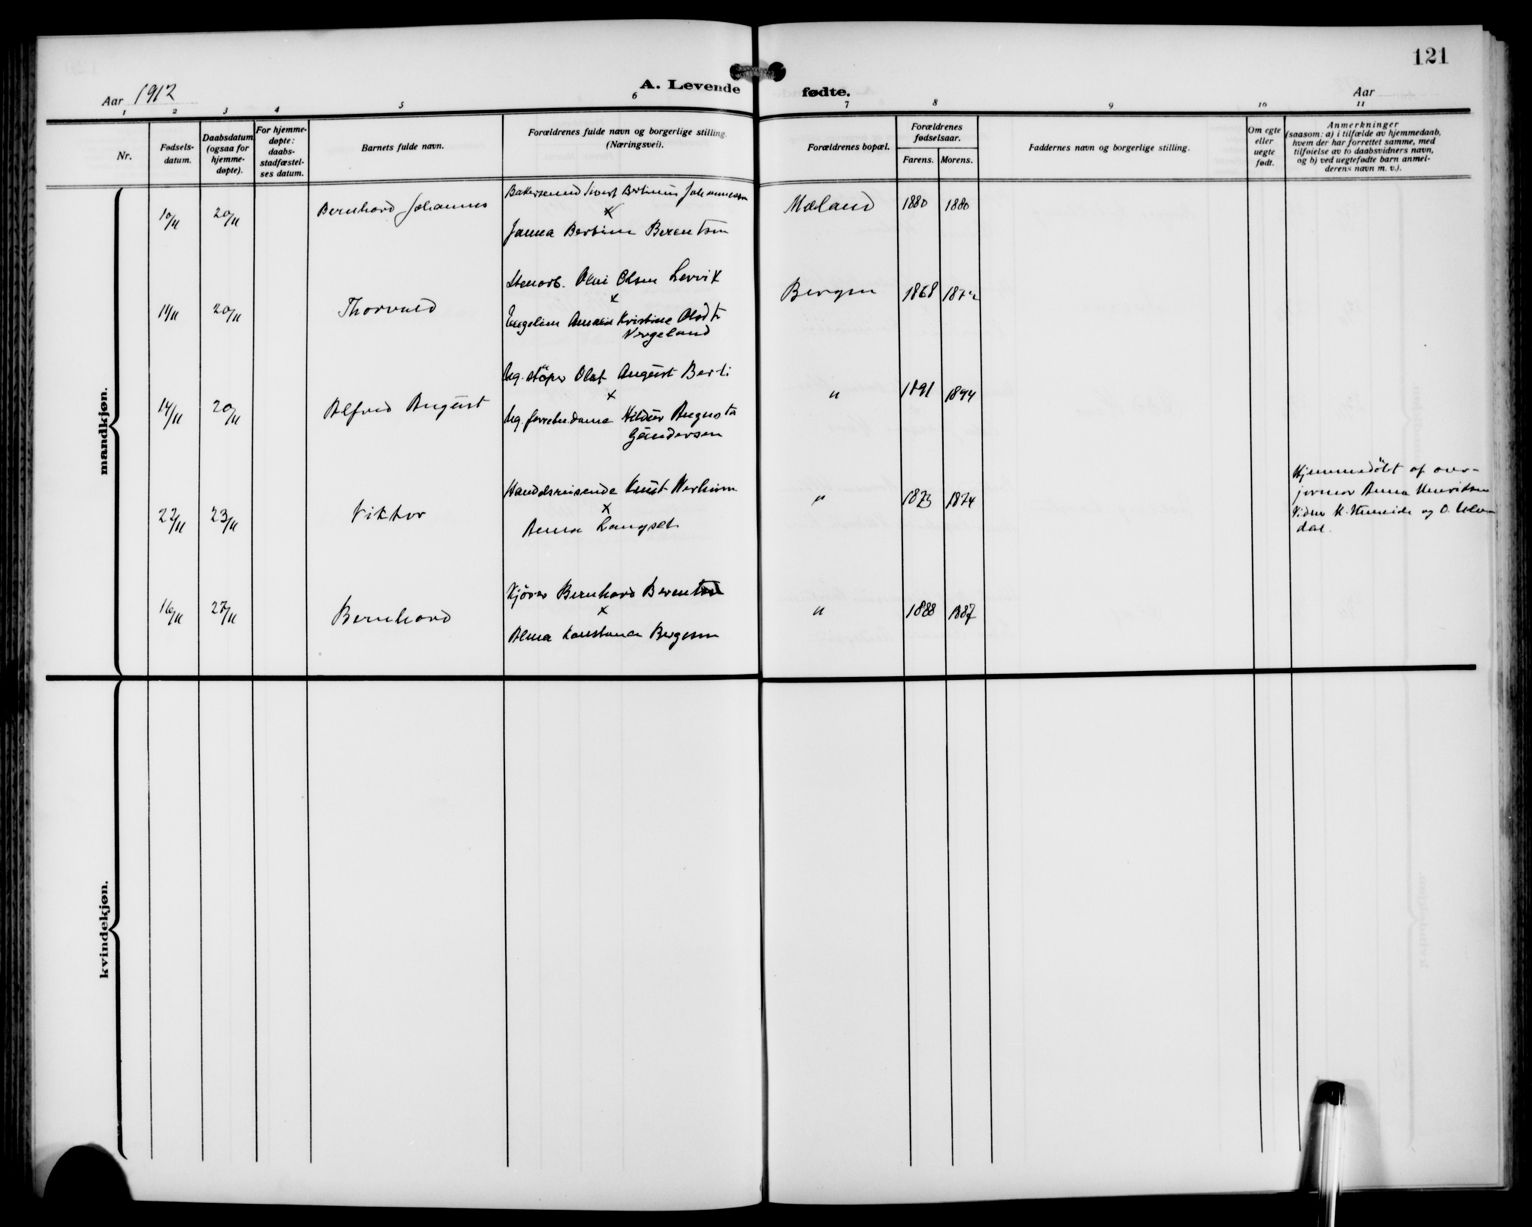 121
Aar 1912
A. Levende fødte.
Aar
1 2 3 4 5 6 7 8 9 10 11
Nr.
Fødsels-
datum.
Daabsdatum
(ogsaa for
hjemme-
døpte).
For hjemme-
døpte:
daabs-
stadfæstel-
ses datum.
Barnets fulde navn.
Forældrenes fulde navn og borgerlige stilling.
(Næringsvei).
Forældrenes bopæl.
Forældrenes
fødselsaar.
Farens. Morens.
Faddernes navn og borgerlige stilling.
Om egte
eller
uegte
født.
Anmerkninger
(saasom: a) i tilfælde av hjemmedaab,
hvem der har forrettet samme, med
tilføielse av to daabsvidners navn,
og b) ved uegtefødte barn anmel-
derens navn m. v.).
mandkjøn.
10/11 20/11 Bernhard Johannes
Bakersvend Sivert Bertinus Johannessen
x
Janna Bertine Berentsen
Mæland 1880 1880
14/11 20/11 Thorvald
Stenarb. Olai Olsen Lervik
x
Engeline Amalia Kristine Olsdtr
Vergeland
Bergen 1868
14/11 20/11 Alfred August
Ug. støper Olaf August Berli
x
Ug. Hildur Augusta
Gundersen
" 1891 1894
22/11 23/11 Viktor
Handelsreisende Knut
x
Anna Langset
" 1873 1874
Hjemmedøbt af over-
jormor Anna Henriksen
Vidner K. og O.
dal.
16/11 27/11 Bernhard
Kjører Bernhard Berentsen
x
Alma Konstance Bergesen
" 1888 1887
kvindekjøn.